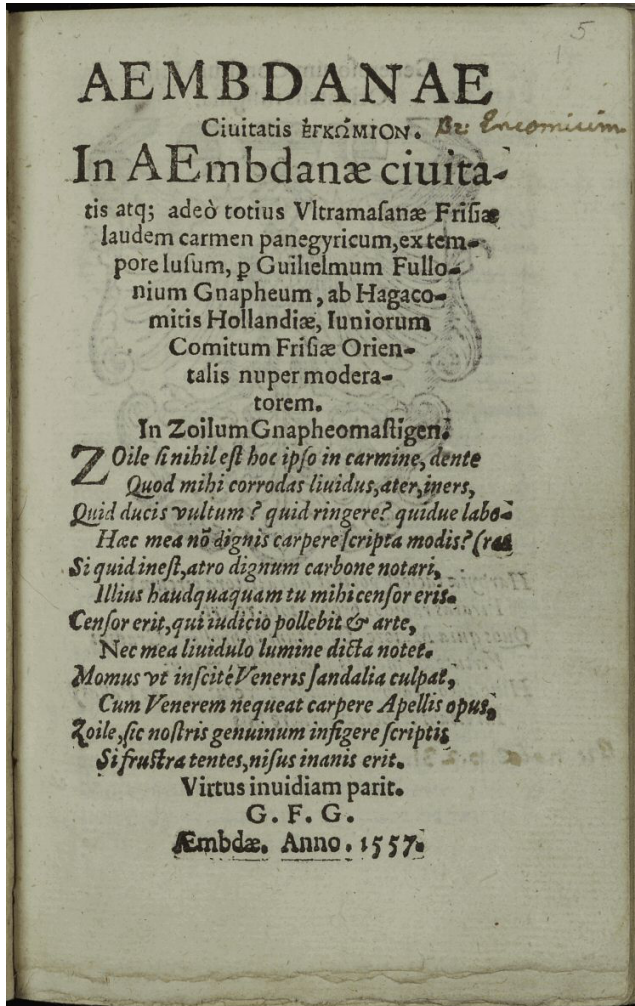 5
AEMBDANAE
Ciuitatis ἘΓΚὨΜΙΟΝ. Encomium
In AEmbdanæ ciuita-
tis atq; adeò totius Vltramasanæ Frisiæ
laudem carmen panegyricum, ex tem-
pore lusum, ꝑ Guilielmum Fullo-
nium Gnapheum, ab Hagaco-
mitis Hollandiæ, Iuniorum
Comitum Frisiæ Orien-
talis nuper modera-
torem.
In Zoilum Gnapheomastigen.
ZOile si nihil est hoc ipso in carmine, dente
Quod mihi corrodas liuidus, ater, iners,
Quid ducis vultum? quid ringere? quidue labo-
Hæc mea nõ dignis carpere scripta modis? (ras
Si quid inest, atro dignum carbone notari,
Illius haudquaquam tu mihi censor eris.
Censor erit, qui iudicio pollebit & arte,
Nec mea liuidulo lumine dicta notet.
Momus vt inscitè Veneris sandalia culpat,
Cum Venerem nequeat carpere Apellis opus,
Zoile, sic nostris genuinum infigere scriptis
Si frustra tentes, nisus inanis erit.
Virtus inuidiam parit.
G. F. G.
Æmbdæ. Anno. 1557.